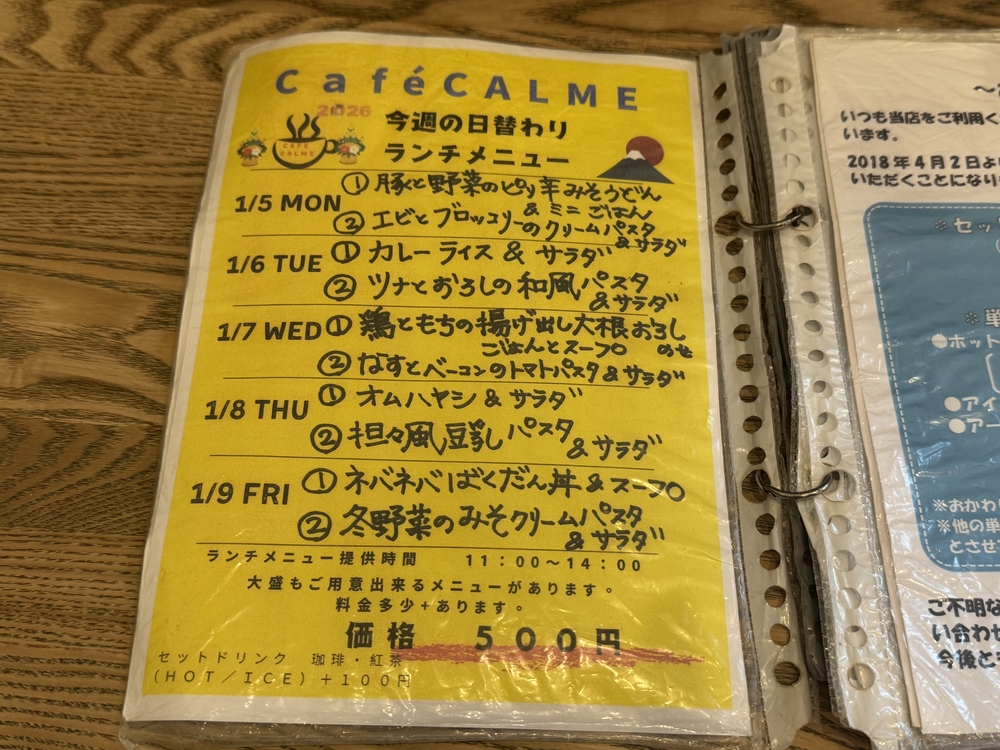 CaféCALME
2026
CAFE
CALME
今週の日替わり
ランチメニュー
1/5 MON
①豚と野菜のピリ辛みそうどん
& ミニごはん
②エビとブロッコリーのクリームパスタ
&サラダ
1/6 TUE
①カレーライス & サラダ
②ツナとおろしの和風パスタ
&サラダ
1/7 WED
①鶏ともちの揚げ出し大根おろし
のせ
ごはんとスープ
②なすとベーコンのトマトパスタ&サラダ
1/8 THU
①オムハヤシ & サラダ
②担々風豆乳パスタ
&サラダ
1/9 FRI
①ネバネバばくだん丼&スープ
②冬野菜のみそクリームパスタ
&サラダ
ランチメニュー提供時間 11:00〜14:00
大盛もご用意出来るメニューがあります。
料金多少+あります。
価格 500円
セットドリンク 珈琲・紅茶
(HOT/ICE)+100円
いつも当店をご利用く
います。
2018年4月2日よ
いただくことになり
※セッ
※単
●ホット
●アイ
●アー
※おかわ
※他の単
とさせ
ご不明な
い合わ
今後と